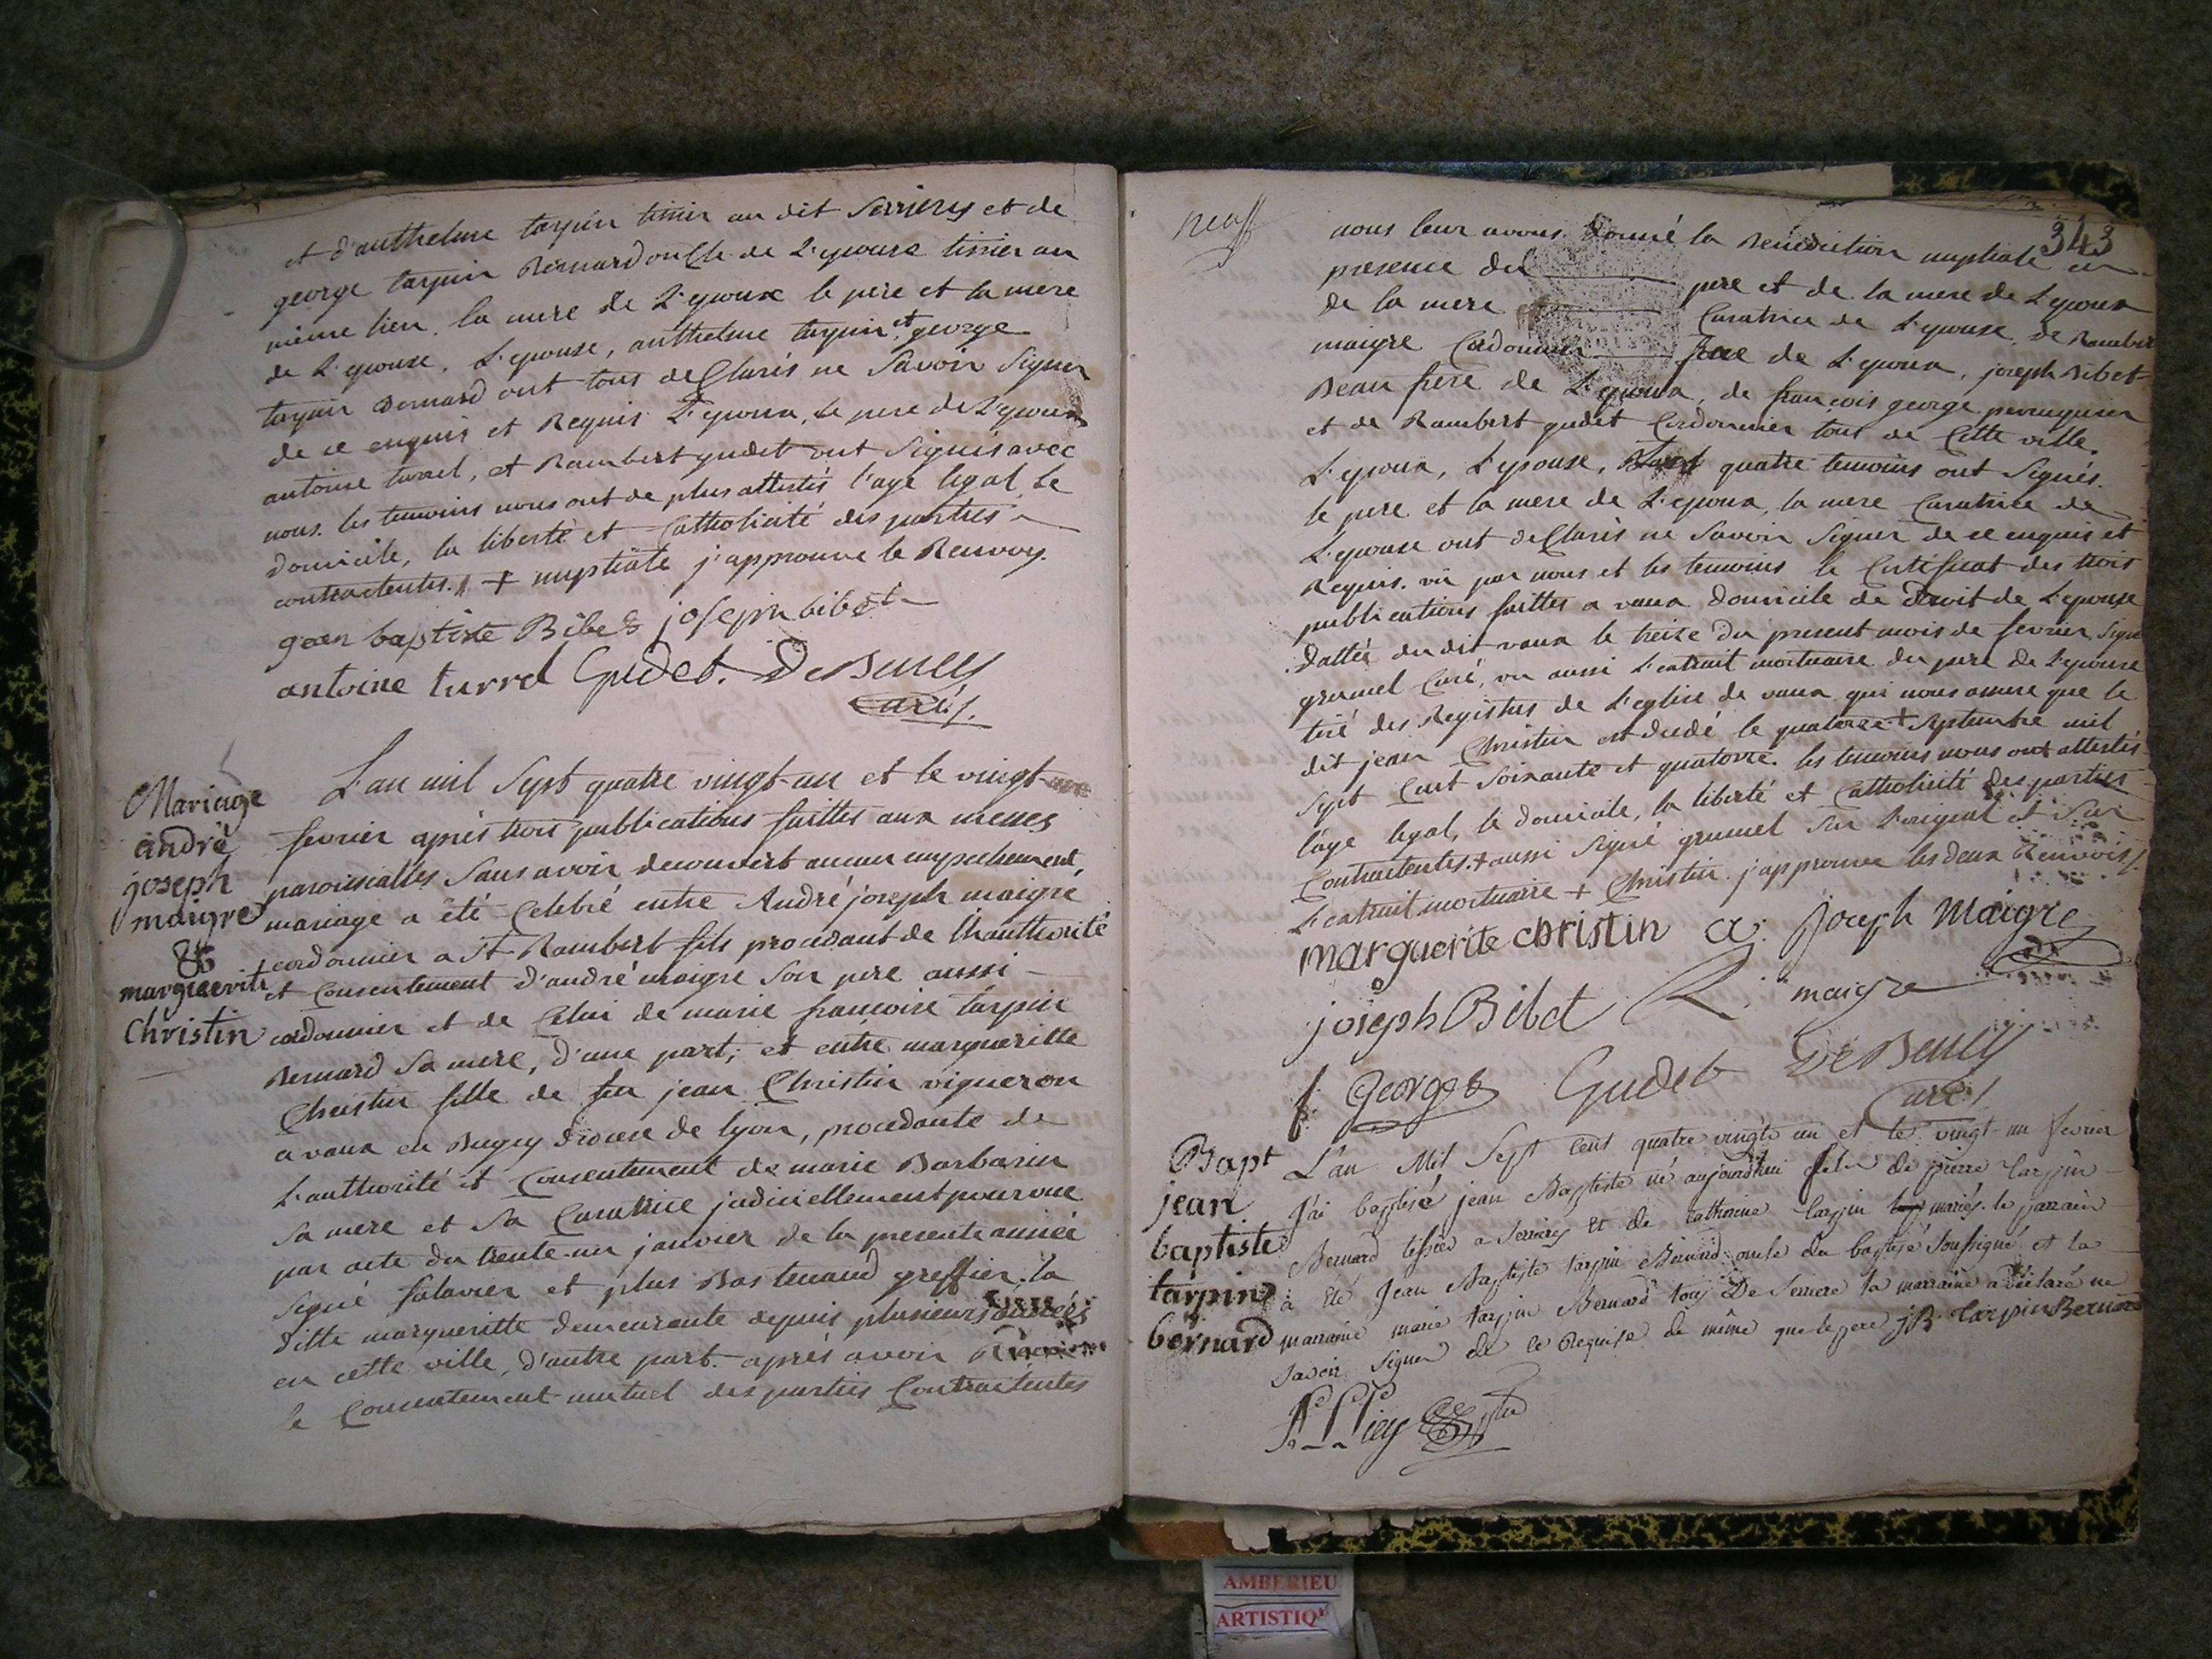 et d'anthelme tarpin tissier au dit Serrieres et de
george tarpin Bernard oncle de L'epouse tissier au
même lieu. la mere de L'epoux le pere et la mere
de L'epouse, L'epouse, anthelme tarpin et george
tarpin Bernard ont tous declarés ne Savoir Signer
de ce enquis et Requis. L'epoux, le pere de L'epoux
antoine turrel, et Rambert gudet ont Signés avec
nous. les temoins nous ont de plus attestés l'age legal, le
domicile, la liberté et Catholicité des parties
contractentes. + nuptiale j'approuve le Renvoy.
jean baptiste Bibet joseph bibet
antoine turrel Gudet. DeBeucy
Curé.
Mariage
andré
joseph
maigre
&
marguerite
Christin
L'an mil Sept quatre vingt-un et le vingt
fevrier après trois publications faittes aux messes
paroissialles Sans avoir decouvert aucun empechement,
mariage a été Celebré entre André joseph maigre
cordonnier a St Rambert fils procedant de L'hauthorité
et Consentement d'andré maigre Son pere aussi
cordonnier et de Celui de marie francoise tarpin
Bernard Sa mere, d'une part; et entre margueritte
Christin fille de feu jean Christin vigneron
a vaux en Bugey diocese de lyon, procedante de
L'authorité et Consentement de marie Barbarin
Sa mere et Sa Curatrice judiciellement pourvue
par acte du trente-un janvier de la presente année
Signé falavier et plus Bas tenand greffier; la
ditte margueritte demeurante depuis plusieurs années
en cette ville, d'autre part. après avoir
le Consentement mutuel des parties Contractentes
neuf
343
nous leur avons donné la Benediction nuptiale en
presence du pere et de la mere de L'epoux
de la mere Curatrice de L'epouse, de Rambert
maigre Cordonnier frere de L'epoux, joseph Bibet
Beau frere de L'epoux, de françois george perruquier
et de Rambert gudet Cordonnier tous de Cette ville.
L'epoux, L'epouse, quatre temoins ont Signés.
le pere et la mere de L'epoux, la mere Curatrice de
L'epouse ont declarés ne Savoir Signer de ce enquis et
Requis. vu par nous et les temoins le Certificat des trois
publications faittes a vaux domicile de droit de L'epouse
dattée du dit vaux le treize du present mois de fevrier, Signé
grumel Curé, vu aussi L'extrait mortuaire du pere de L'epouse
tiré des Registres de L'eglise de vaux qui nous assure que le
dit jean Christin est decedé le quatorze + Septembre mil
Sept Cent Soixante et quatorze. les temoins nous ont attestés
l'age legal, le domicile, la liberté et Catholicité des parties
Contractentes. + aussi Signé grumel Sur L'original et Sur
L'extrait mortuaire + Christin. j'approuve les deux Renvois.
marguerite christin a: joseph Maigre
joseph Bibet R: maigre
f: George Gudet DeBeucy
Curé
Bapt
jean
baptiste
tarpin
bernard
L'an Mil Sept cent quatre vingts un et le vingt un fevrier
J'ai baptisé jean Baptiste né aujourd'hui fils de pierre tarpin
Bernard tissier a Serrieres Et de catherine tarpin mariés. le parrain
a été Jean Baptiste tarpin Bernard oncle du baptisé Soussigné et la
marraine marie tarpin Bernard tous De Serriere la marraine a déclaré ne
Savoir Signer de ce Requise de même que le pere JB tarpin Bernard